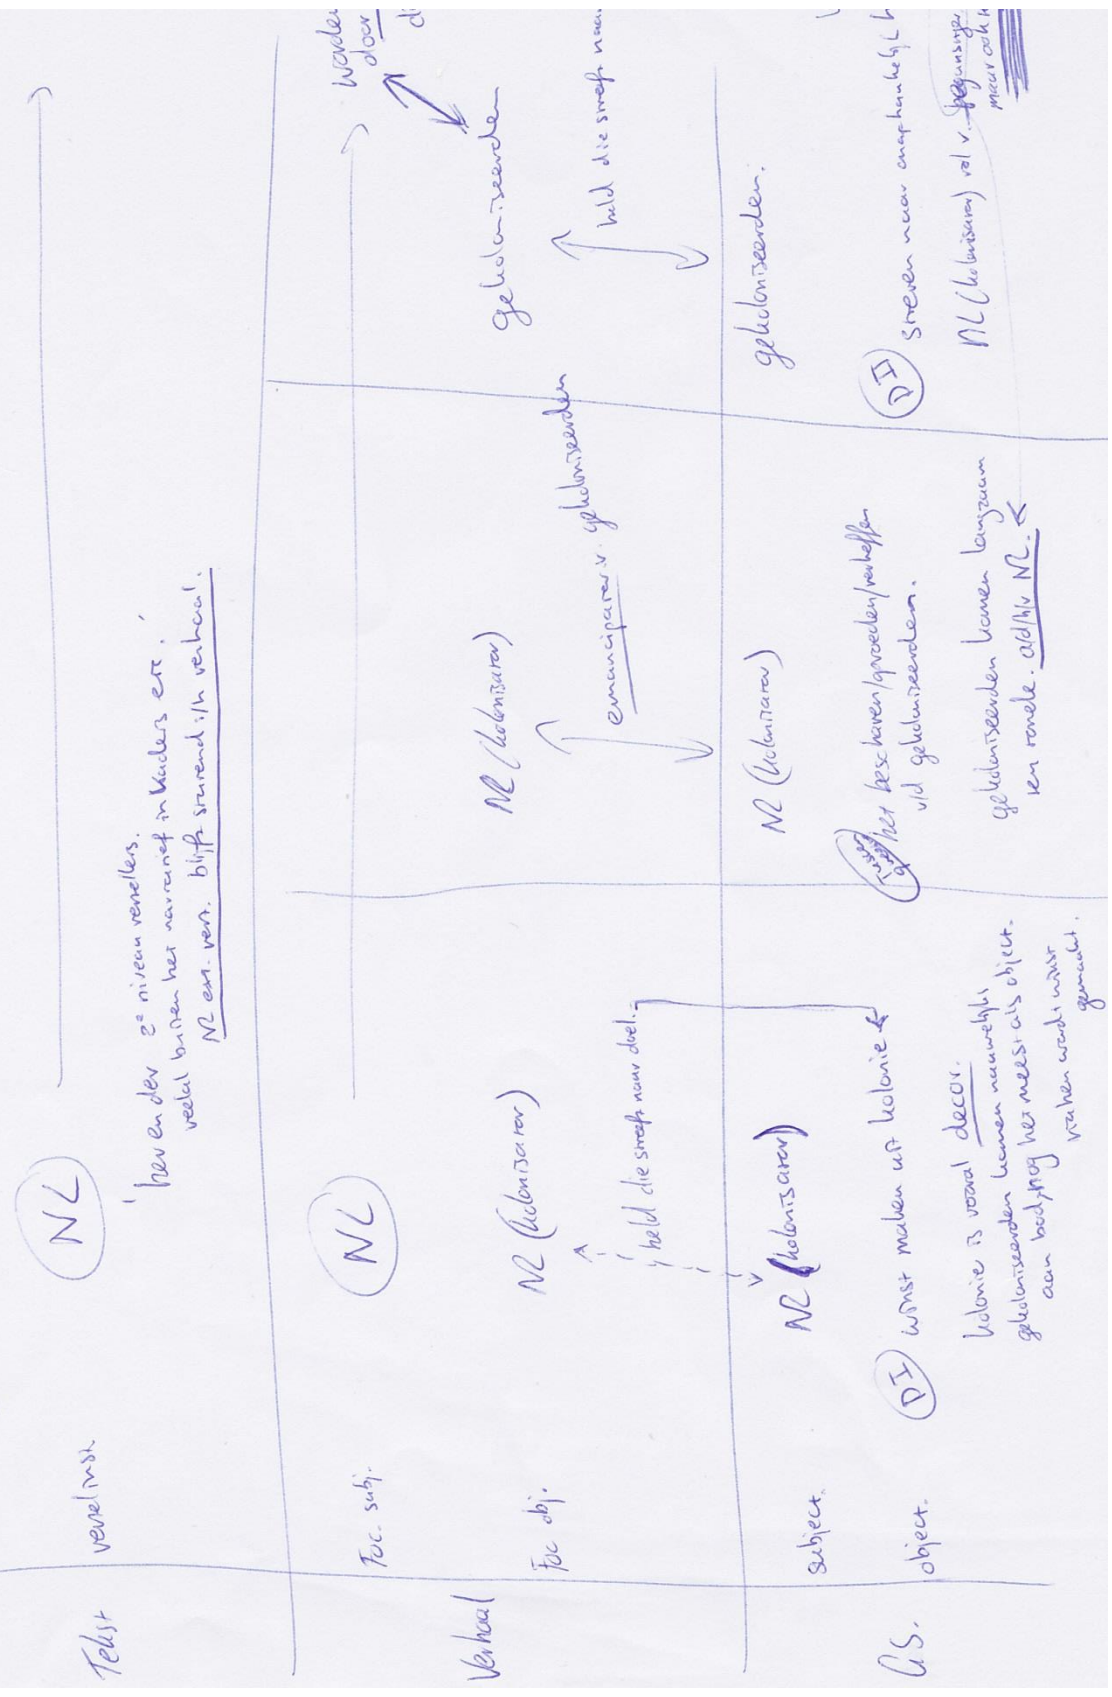 Tekst
vertelinst.
NL
'hier en der 2e niveau vertellers.
veelal binnen het narratief in kaders etc.'
NL ext. vert. blijft sturend i/h verhaal.
Verhaal
Foc. subj.
NL
worden
door
Foc obj.
NL (kolonisator)
held die streeft naar doel.
NL (kolonisator)
emancipator v. gekoloniseerden
gekoloniseerden
held die streeft naar
G.S.
subject.
NL (kolonisator)
NL (kolonisator)
gekoloniseerden.
object.
DI
winst maken uit kolonie
kolonie is vooral decor.
gekoloniseerden komen nauwelijks
aan bod, nog het meest als object.
gemaakt.
het beschaven/opvoeden/verheffen
v/d gekoloniseerden.
gekoloniseerden komen langzaam
ten tonele. a/d/h/v NL.
DI
streven naar onafhankelijkh
NL (kolonisator) rol v. begunstiger
maar ook